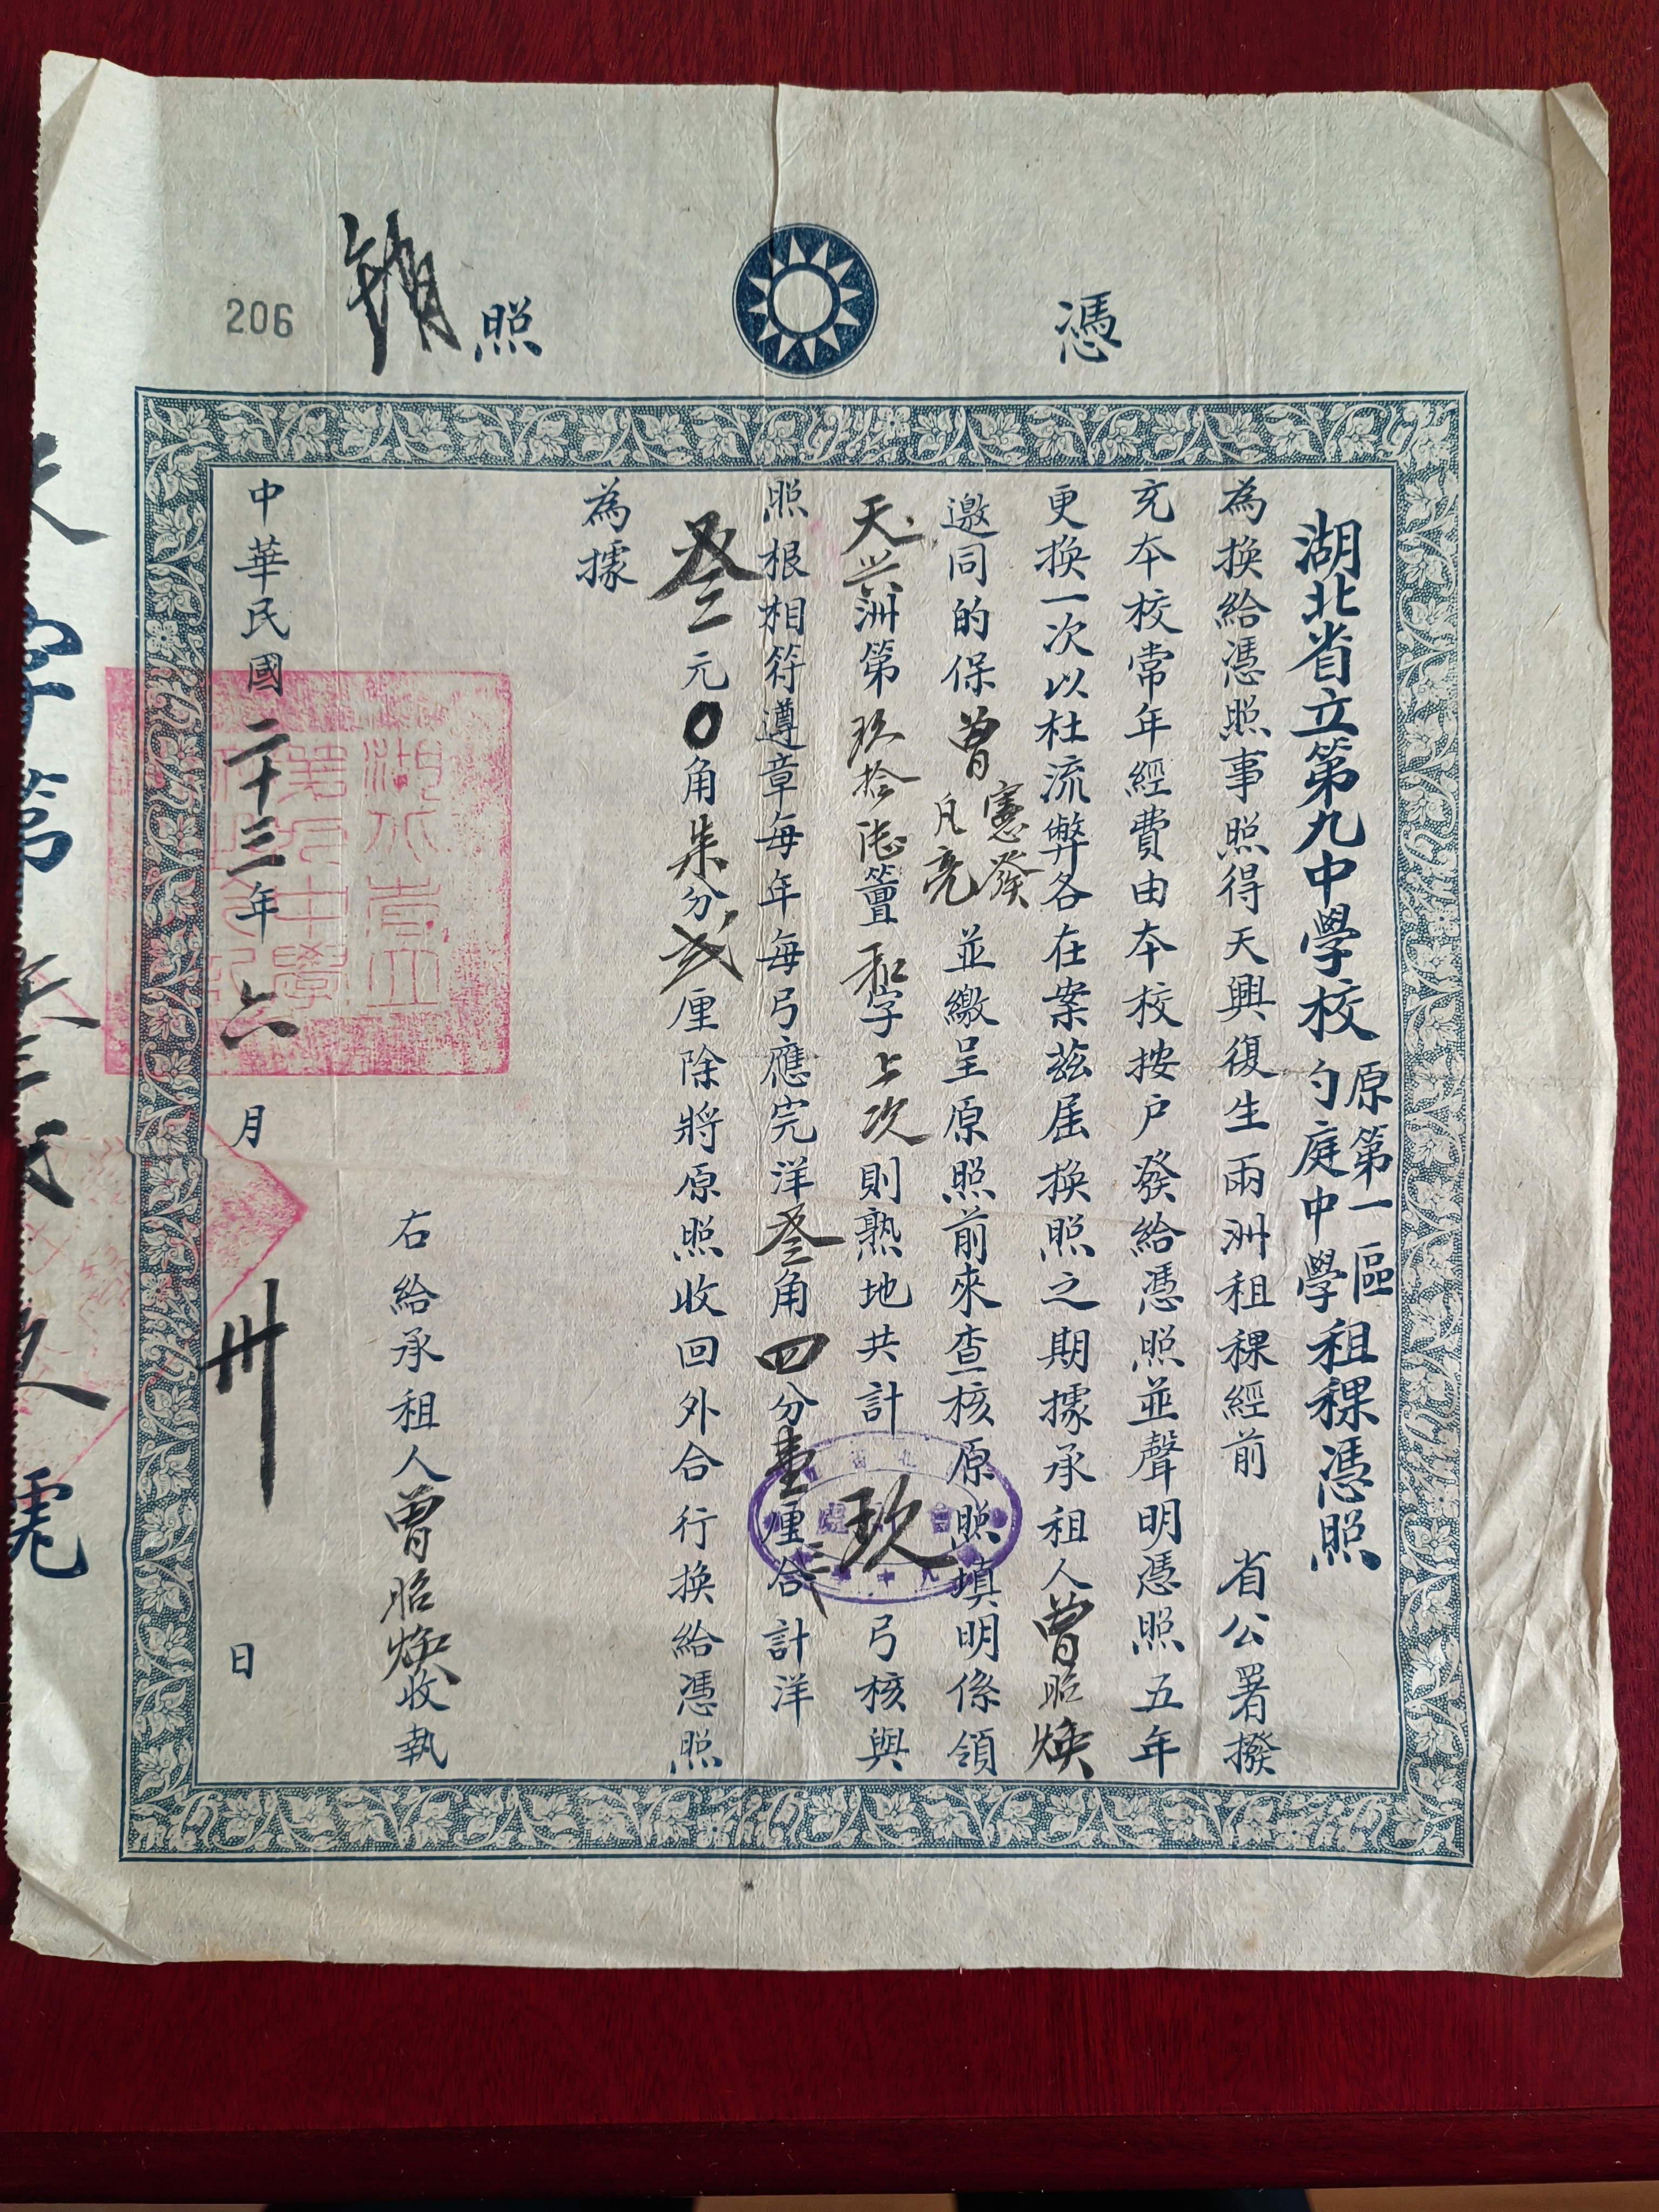 憑照
銷
206
湖北省立第九中學校原第一區勺庭中學租稞憑照
為換給憑照事照得天興復生兩洲租稞經前 省公署撥
充本校常年經費由本校按户發給憑照並聲明憑照五年
更換一次以杜流弊各在案茲屆換照之期據承租人曾昭煥
邀同的保曾憲發凡亮並繳呈原照前來查核原照填明係領
天兴洲第玖拾陆簹和字上次則熟地共計玖弓核與
照根相符遵章每年每弓應完洋叁角四分壹厘合計洋
叁元0角柒分弍厘除將原照收回外合行換給憑照
為據
右給承租人曾昭煥收執
中華民國二十三年六月卅日